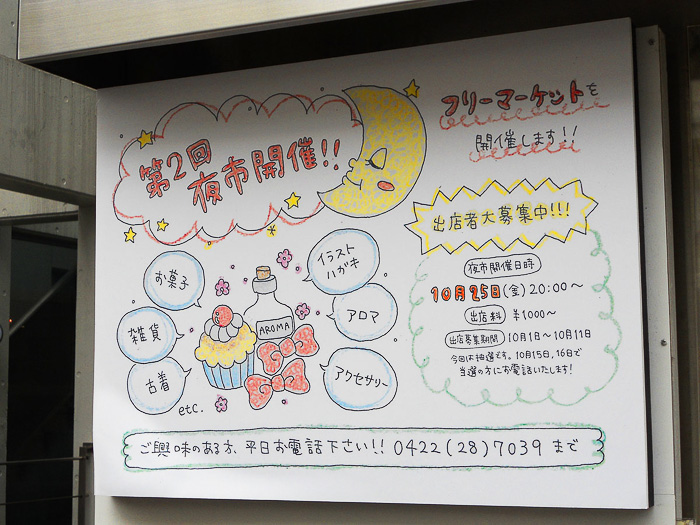 第2回
夜市開催!!
フリーマーケットを
開催します!!
出店者大募集中!!!
夜市開催日時
10月25日(金)20:00〜
出店料 ¥1000〜
出店募集期間 10月1日〜10月11日
今回は抽選です。10月15日,16日で
当選の方にお電話いたします!
お菓子
雑貨
古着
etc.
イラスト
ハガキ
アロマ
アクセサリー
AROMA
ご興味のある方、平日お電話下さい!! 0422(28)7039 まで